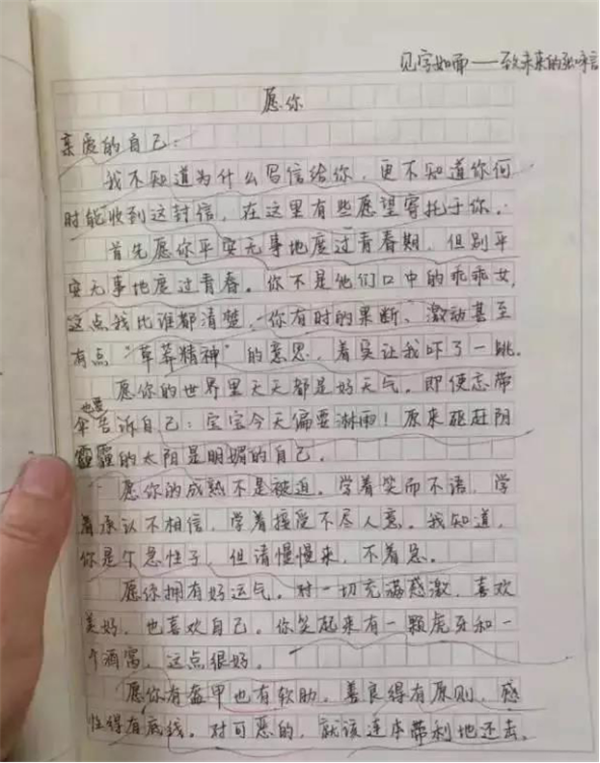 见字如面——致未来的张呤言
愿你
亲爱的自己：
我不知道为什么写信给你，更不知道你何
时能收到这封信，在这里有些愿望寄托于你。：
首先愿你平安无事地度过青春期，但别平
安无事地度过青春。你不是他们口中的乖乖女，
这点我比谁都清楚，你有时的果断、激动甚至
有点“草莽精神”的意思，着实让我吓了一跳。
愿你的世界里天天都是好天气。即便忘带
伞也要告诉自己：宝宝今天偏要淋雨！原来驱赶阴
霾的太阳是明媚的自己。
愿你的成熟不是被迫。学着笑而不语，学
着承认不相信，学着接受不尽人意。我知道，
你是个急性子，但请慢慢来，不着急。
愿你拥有好运气。对一切充满感激，喜欢
美好，也喜欢自己。你笑起来有一颗虎牙和一
个酒窝，这点很好。
愿你有盔甲也有软肋。善良得有原则，感
性得有底线。对可恶的，就该连本带利地还去。